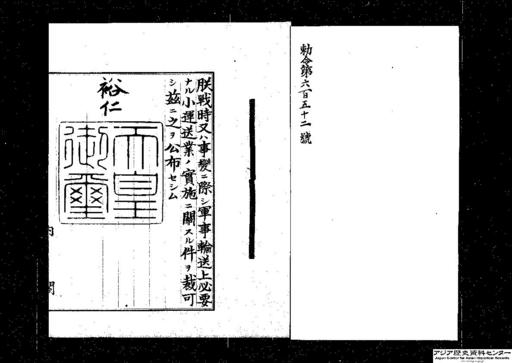 勅令第六百五十二號
朕戰時又ハ事變ニ際シ軍事輸送上必要
ナル小運送業ノ實施ニ關スル件ヲ裁可
シ茲ニ之ヲ公布セシム
裕仁
天皇御璽
内閣
アジア歴史資料センター
Japan Center for Asian Historical Records